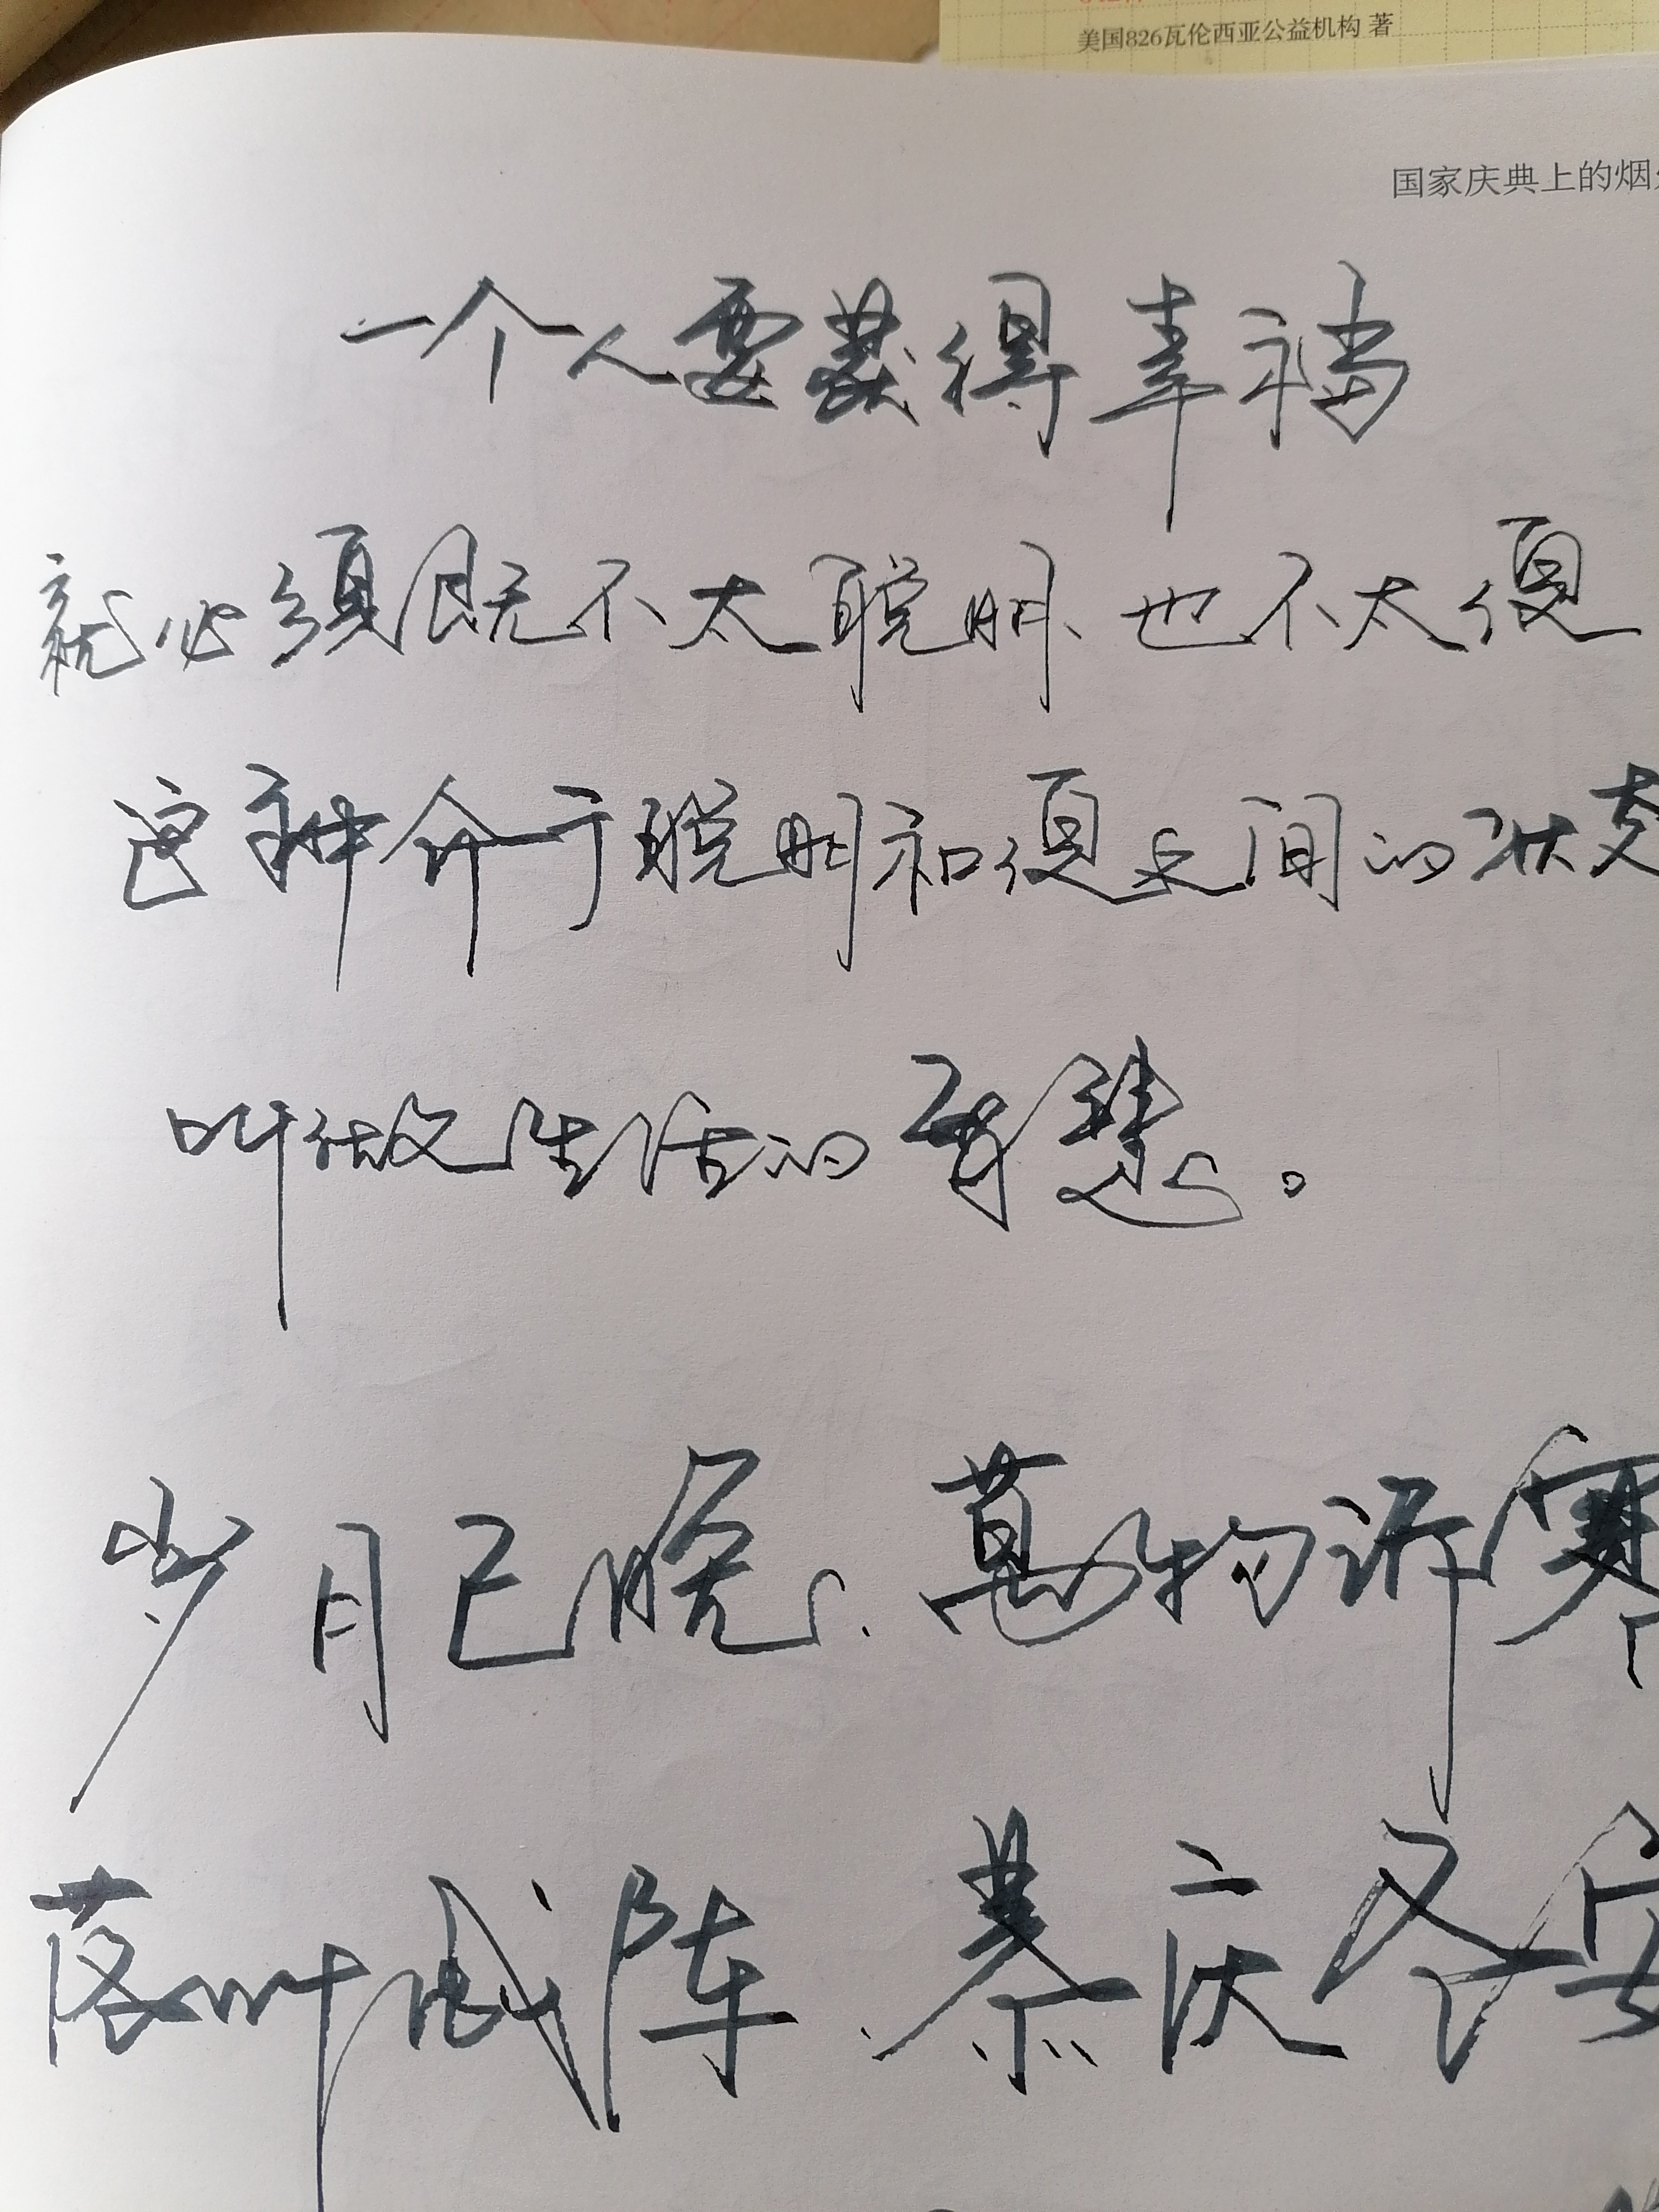 美国826瓦伦西亚公益机构 著
国家庆典上的烟
一个人要获得幸福
就必须既不太聪明、也不太傻
这种介于聪明和傻之间的状态
叫做生活的智慧。
岁月已晚、萬物迎寒
落叶成阵、恭庆冬安